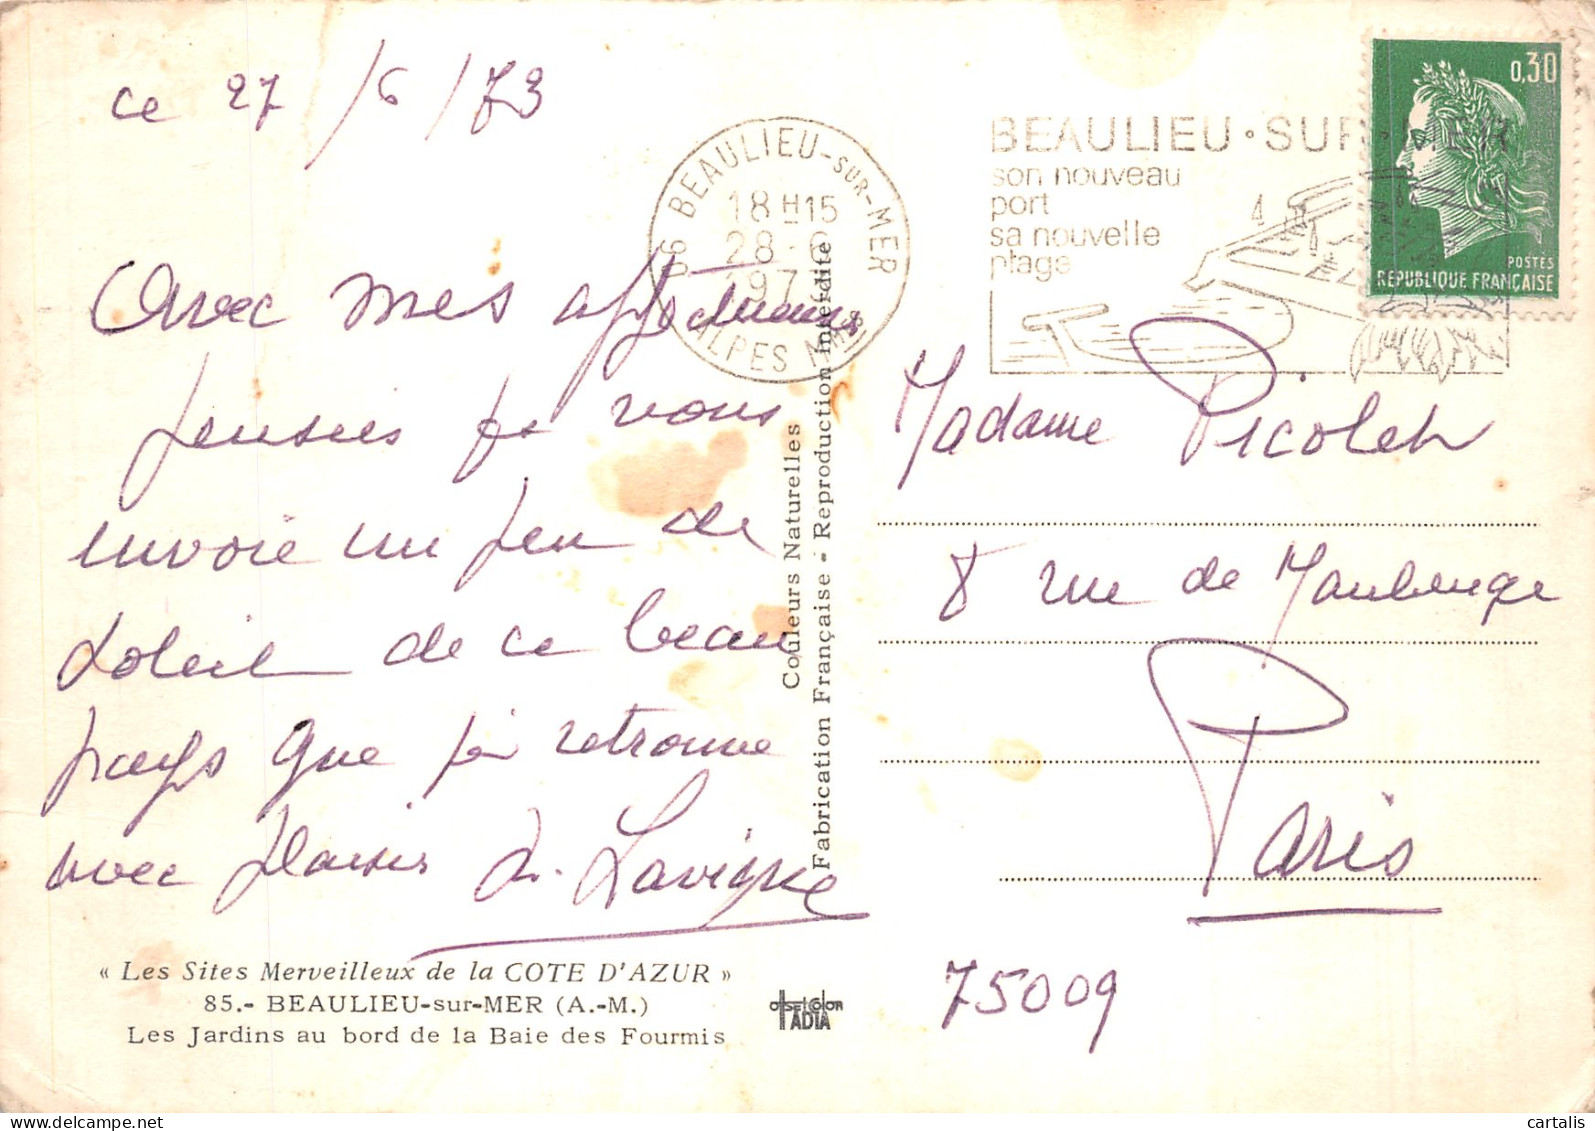 ce 27/6/73
Avec mes affectueuses
pensées je vous
envoie un peu de
soleil de ce beau
pays que j'ai retrouvé
avec plaisir
Lavigne
« Les Sites Merveilleux de la COTE D'AZUR »
85.- BEAULIEU-sur-MER (A.-M.)
Les Jardins au bord de la Baie des Fourmis
OffsetColor
TADIA
Couleurs Naturelles
Fabrication Française - Reproduction interdite
06 BEAULIEU-SUR-MER
18H15
28-6
1973
ALPES MMES
BEAULIEU·SUR·MER
son nouveau
port
sa nouvelle
plage
0,30
POSTES
REPUBLIQUE FRANÇAISE
Madame Picolet
8 rue de Maubeuge
Paris
75009
cartalis